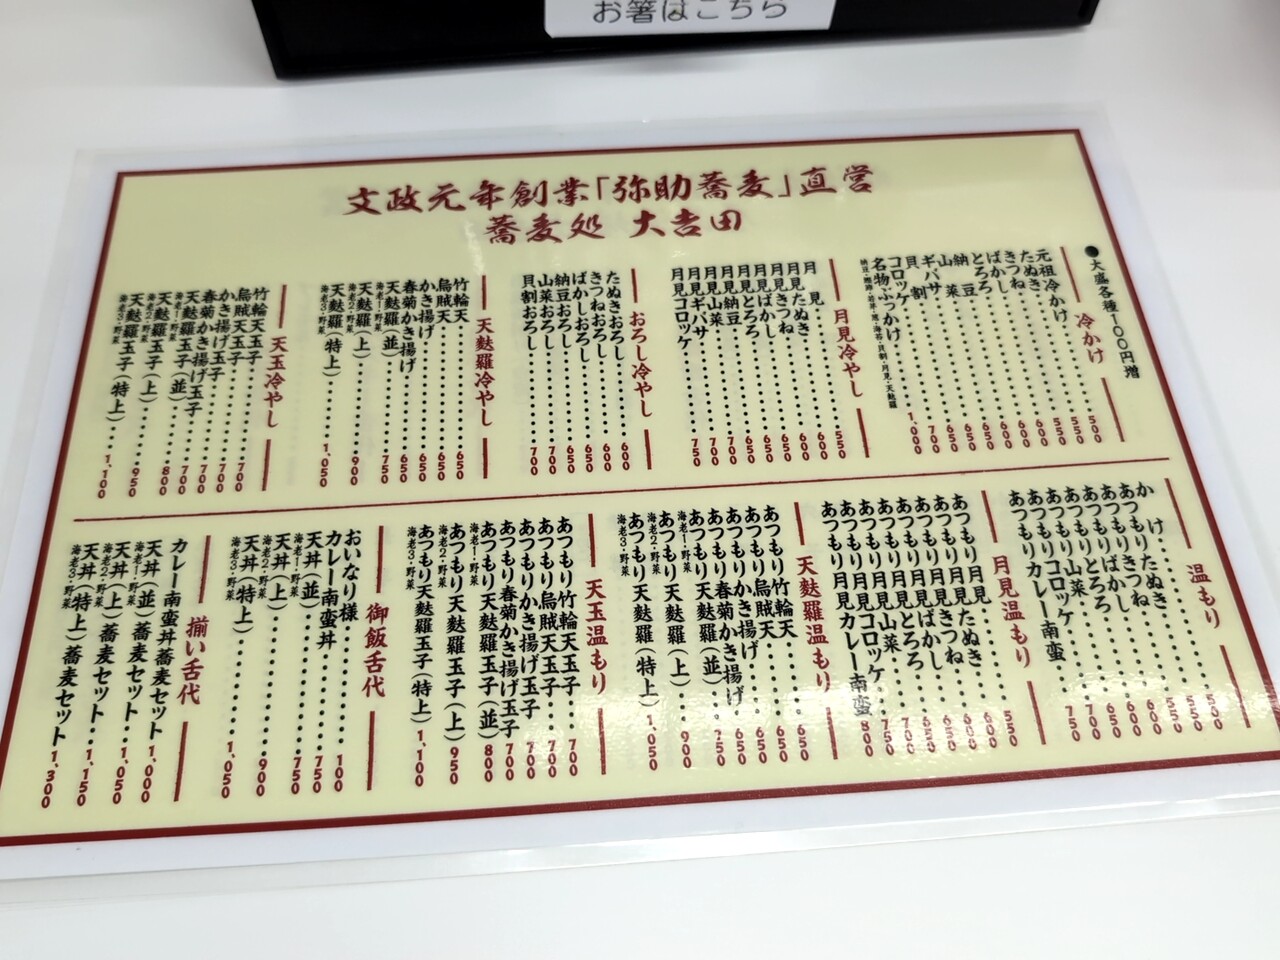 お箸はこちら
文政元年創業「弥助蕎麦」直営
蕎麦処 大吉田
●大盛各種100円増
冷かけ
元祖冷かけ 500
たぬき 550
きつね 600
ばかし 600
とろろ 650
納豆 650
山菜 650
ギバサ 700
貝割
コロッケ
名物・ぶっかけ 1,000
月見冷やし
月見 550
月見たぬき 600
月見きつね 650
月見ばかし 650
月見とろろ 650
月見納豆 700
月見山菜 700
月見ギバサ
月見コロッケ 750
おろし冷やし
たぬきおろし 600
きつねおろし 600
ばかしおろし 650
納豆おろし
山菜おろし 700
貝割おろし 700
天麩羅冷やし
竹輪天 650
烏賊天 650
かき揚げ 650
春菊かき揚げ 650
天麩羅（並） 750
海老1・野菜
天麩羅（上） 900
海老2・野菜
天麩羅（特上） 1,050
海老3・野菜
天玉冷やし
竹輪天玉子 700
烏賊天玉子 700
かき揚げ玉子 700
春菊かき揚げ玉子 700
天麩羅玉子（並） 800
海老1・野菜
天麩羅玉子（上） 950
海老2・野菜
天麩羅玉子（特上） 1,100
海老3・野菜
温もり
かけ 500
あつもりたぬき 550
あつもりきつね
あつもりばかし 600
あつもりとろろ 650
あつもり山菜
あつもりコロッケ 700
あつもりカレー南蛮 750
月見温もり
あつもり月見 550
あつもり月見たぬき 600
あつもり月見きつね 650
あつもり月見ばかし 650
あつもり月見とろろ 700
あつもり月見山菜
あつもり月見コロッケ 750
あつもり月見カレー南蛮 800
天麩羅温もり
あつもり竹輪天 650
あつもり烏賊天 650
あつもりかき揚げ 650
あつもり春菊かき揚げ 650
あつもり天麩羅（並） 750
海老1・野菜
あつもり天麩羅（上） 900
海老2・野菜
あつもり天麩羅（特上） 1,050
海老3・野菜
天玉温もり
あつもり竹輪天玉子 700
あつもり烏賊天玉子 700
あつもりかき揚げ玉子 700
あつもり春菊かき揚げ玉子 700
あつもり天麩羅玉子（並） 800
海老1・野菜
あつもり天麩羅玉子（上） 950
海老2・野菜
あつもり天麩羅玉子（特上） 1,100
海老3・野菜
御飯舌代
おいなり様 100
カレー南蛮丼 750
天丼（並） 750
海老1・野菜
天丼（上） 900
海老2・野菜
天丼（特上） 1,050
海老3・野菜
揃い舌代
カレー南蛮丼蕎麦セット 1,000
天丼（並）蕎麦セット 1,050
海老1・野菜
天丼（上）蕎麦セット 1,150
海老2・野菜
天丼（特上）蕎麦セット 1,300
海老3・野菜